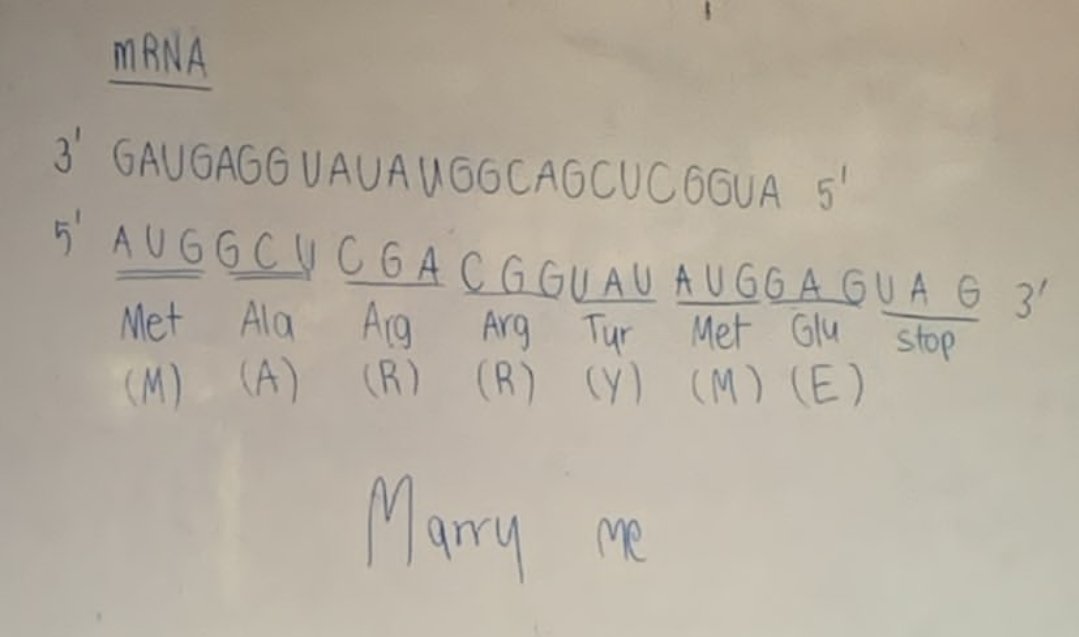 mRNA
3' GAUGAGGUAUAUGGCAGCUCGGUA 5'
5' AUG GCU CGA CGG UAU AUG GAG UAG 3'
Met Ala Arg Arg Tyr Met Glu stop
(M) (A) (R) (R) (Y) (M) (E)
Marry me